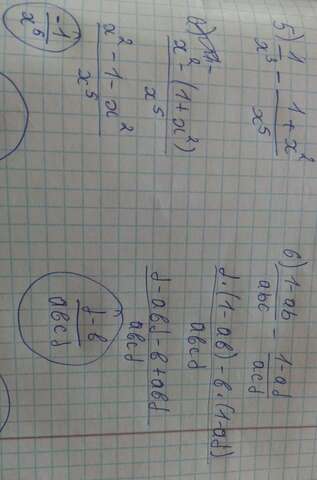 5) 1/x³ - (1+x²)/x⁵
(x²-(1+x²))/x⁵
(x²-1-x²)/x⁵
-1/x⁵
6) (1-ab)/abc - (1-ad)/acd
(d·(1-ab)-b·(1-ad))/abcd
(d-abd-b+abd)/abcd
(d-b)/abcd